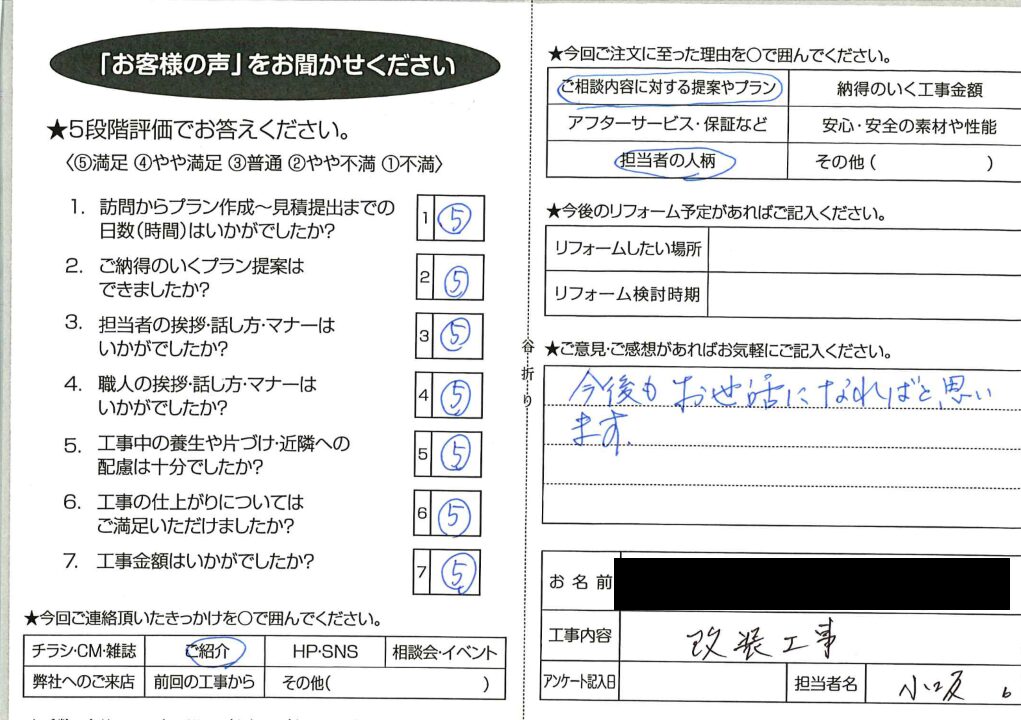 「お客様の声」をお聞かせください
★5段階評価でお答えください。
〈⑤満足 ④やや満足 ③普通 ②やや不満 ①不満〉
1. 訪問からプラン作成～見積提出までの
日数(時間)はいかがでしたか?
1 ⑤
2. ご納得のいくプラン提案は
できましたか?
2 ⑤
3. 担当者の挨拶・話し方・マナーは
いかがでしたか?
3 ⑤
4. 職人の挨拶・話し方・マナーは
いかがでしたか?
4 ⑤
5. 工事中の養生や片づけ・近隣への
配慮は十分でしたか?
5 ⑤
6. 工事の仕上がりについては
ご満足いただけましたか?
6 ⑤
7. 工事金額はいかがでしたか?
7 ⑤
★今回ご連絡頂いたきっかけを〇で囲んでください。
チラシ・CM・雑誌 ご紹介 HP・SNS 相談会・イベント
弊社へのご来店 前回の工事から その他( )
谷折り
★今回ご注文に至った理由を〇で囲んでください。
ご相談内容に対する提案やプラン 納得のいく工事金額
アフターサービス・保証など 安心・安全の素材や性能
担当者の人柄 その他( )
★今後のリフォーム予定があればご記入ください。
リフォームしたい場所
リフォーム検討時期
★ご意見・ご感想があればお気軽にご記入ください。
今後も お世話になればと思い
ます.
お名前
工事内容 改装工事
アンケート記入日 担当者名 小坂